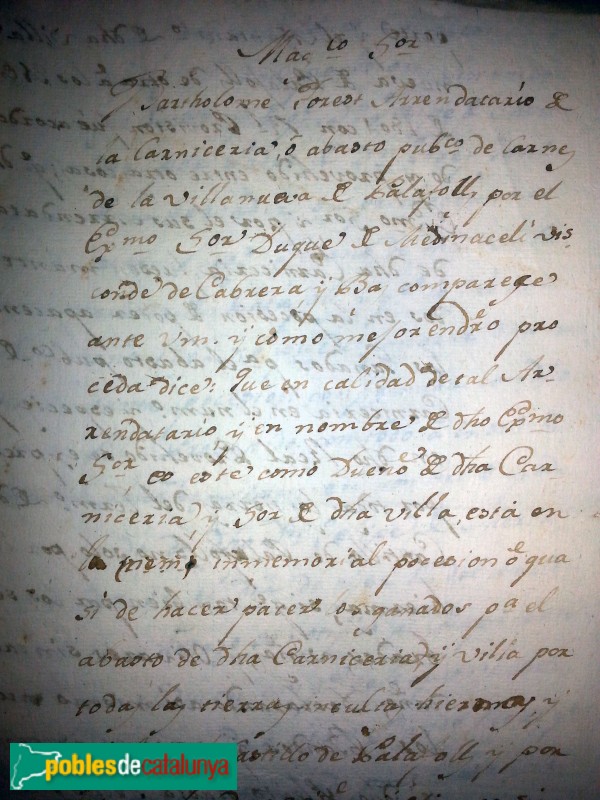 Mag.co Sor
Bartholome Forest Arrendatario de
la Carniceria, o abasto pub.co de Carnes
de la Villanueva de Palafolls por el
Ex.mo Sor Duque de Medinaceli Vis-
conde de Cabrera y Bas comparege
ante Vm. y como mejor en dr.o pro
ceda dice: Que en calidad de tal Ar-
rendatario y en nombre de dho Ex.mo
Sor este como Dueño de dha Car-
niceria y Sor de dha villa, está en
la inmemorial pocesion o qua
si de hacer pacer los ganados pa el
abasto de dha Carniceria y Villa por
toda las tierras incultas hiermas y
Castillo de Palafolls y por
poblesdecatalunya